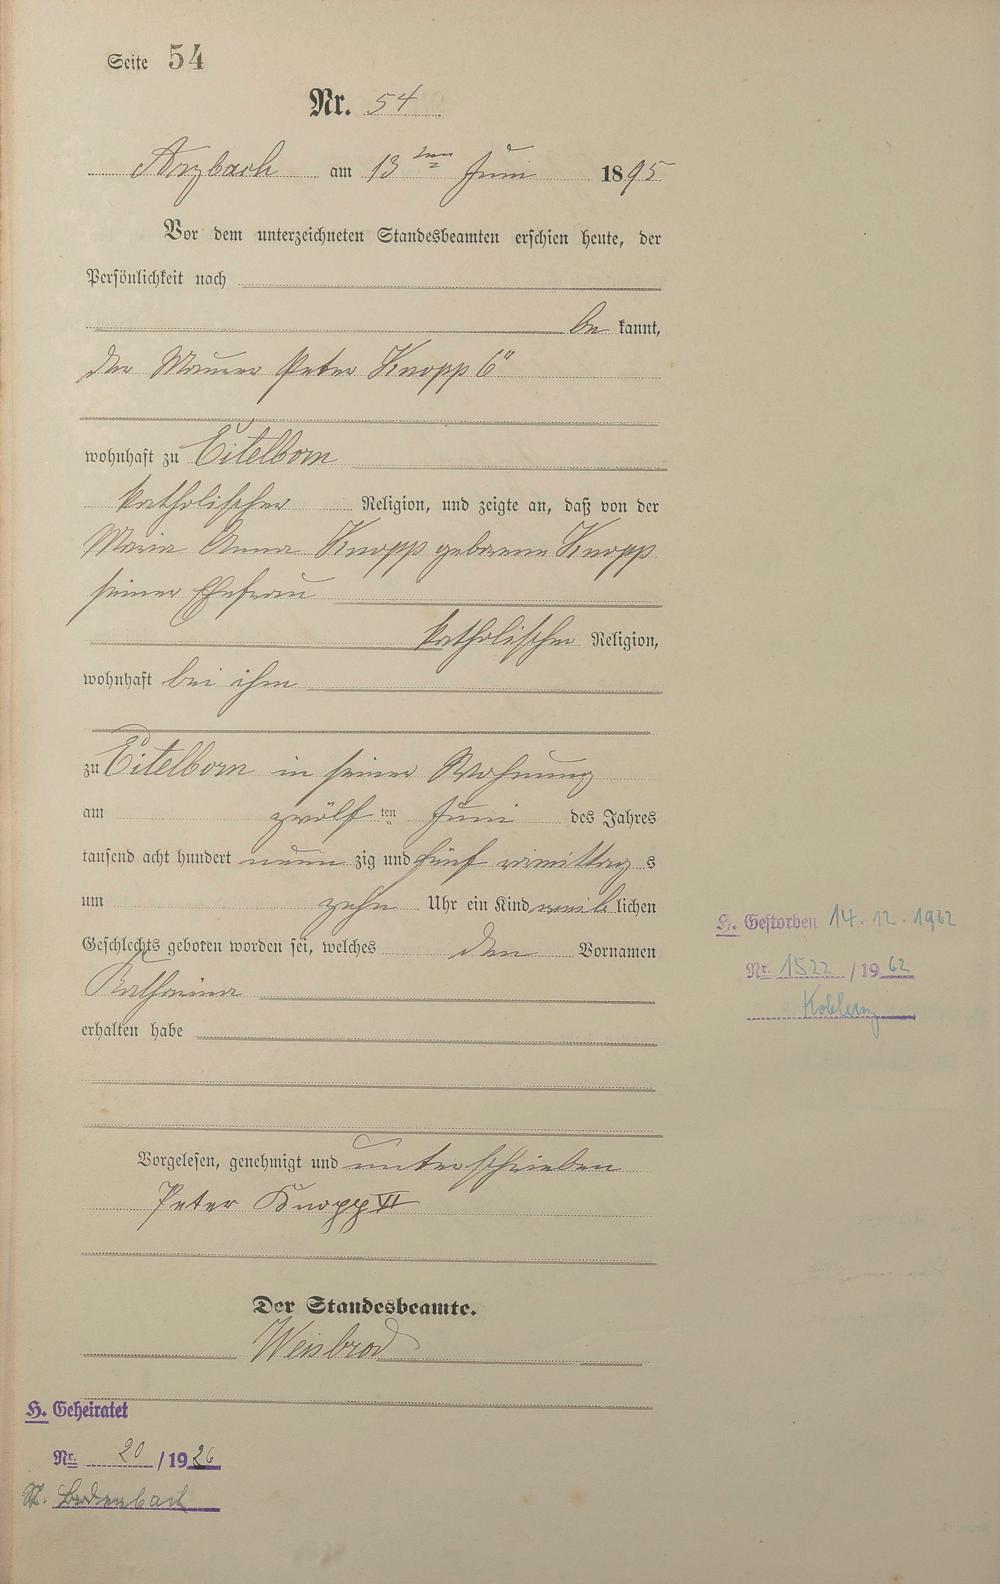 Seite 54
Nr. 54
Arzbach am 13ten Juni 1895
Vor dem unterzeichneten Standesbeamten erschien heute, der
Persönlichkeit nach
be kannt,
der Maurer Peter Knopp 6"
wohnhaft zu Eitelborn
katholischer Religion, und zeigte an, daß von der
Maria Anna Knopp geborene Knopp
seiner Ehefrau
katholischer Religion,
wohnhaft bei ihm
zu Eitelborn in seiner Wohnung
am zwölf ten Juni des Jahres
tausend acht hundert neun zig und fünf vormittag s
um zehn Uhr ein Kind weib lichen
Geschlechts geboren worden sei, welches den Vornamen
Katharina
erhalten habe
Vorgelesen, genehmigt und unterschrieben
Peter Knopp VI
Der Standesbeamte.
Weisbrod
H. Gestorben 14.12.1962
Nr. 1522 / 19 62
Koblenz
H. Geheiratet
Nr. 20 / 19 26